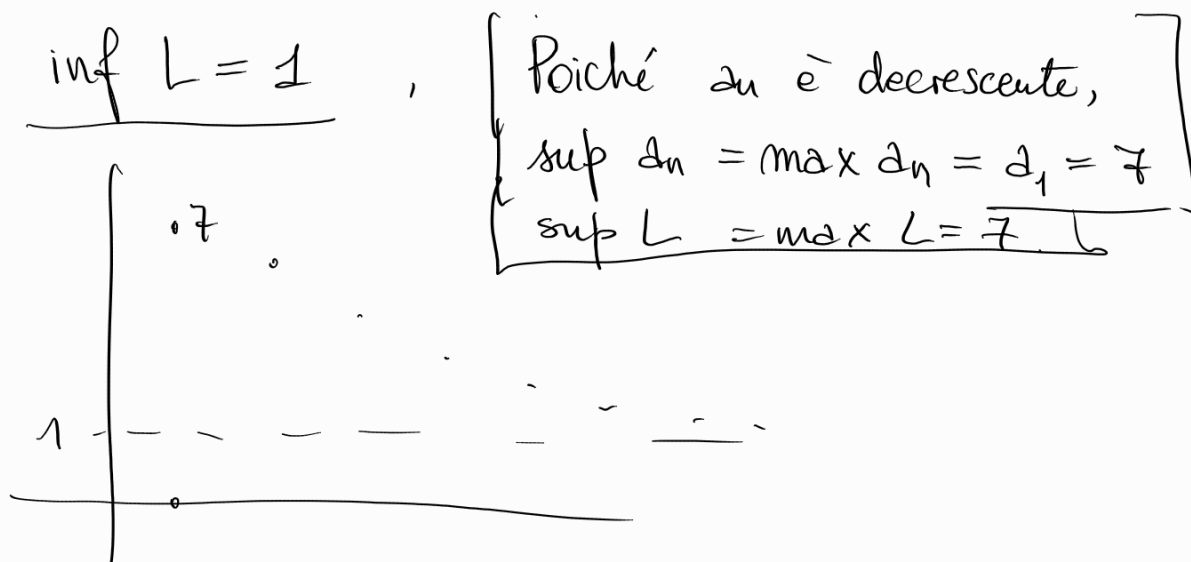 inf L = 1 ,
Poiché an è decrescente,
sup an = max an = a₁ = 7
sup L = max L = 7
.7
1